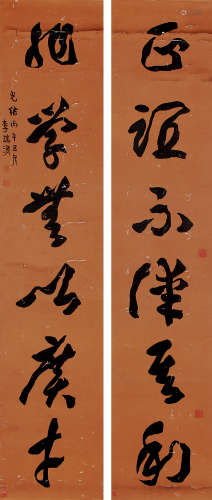 正誼不謀其利
非學無以廣才
光緒丙午五月
李瑞清